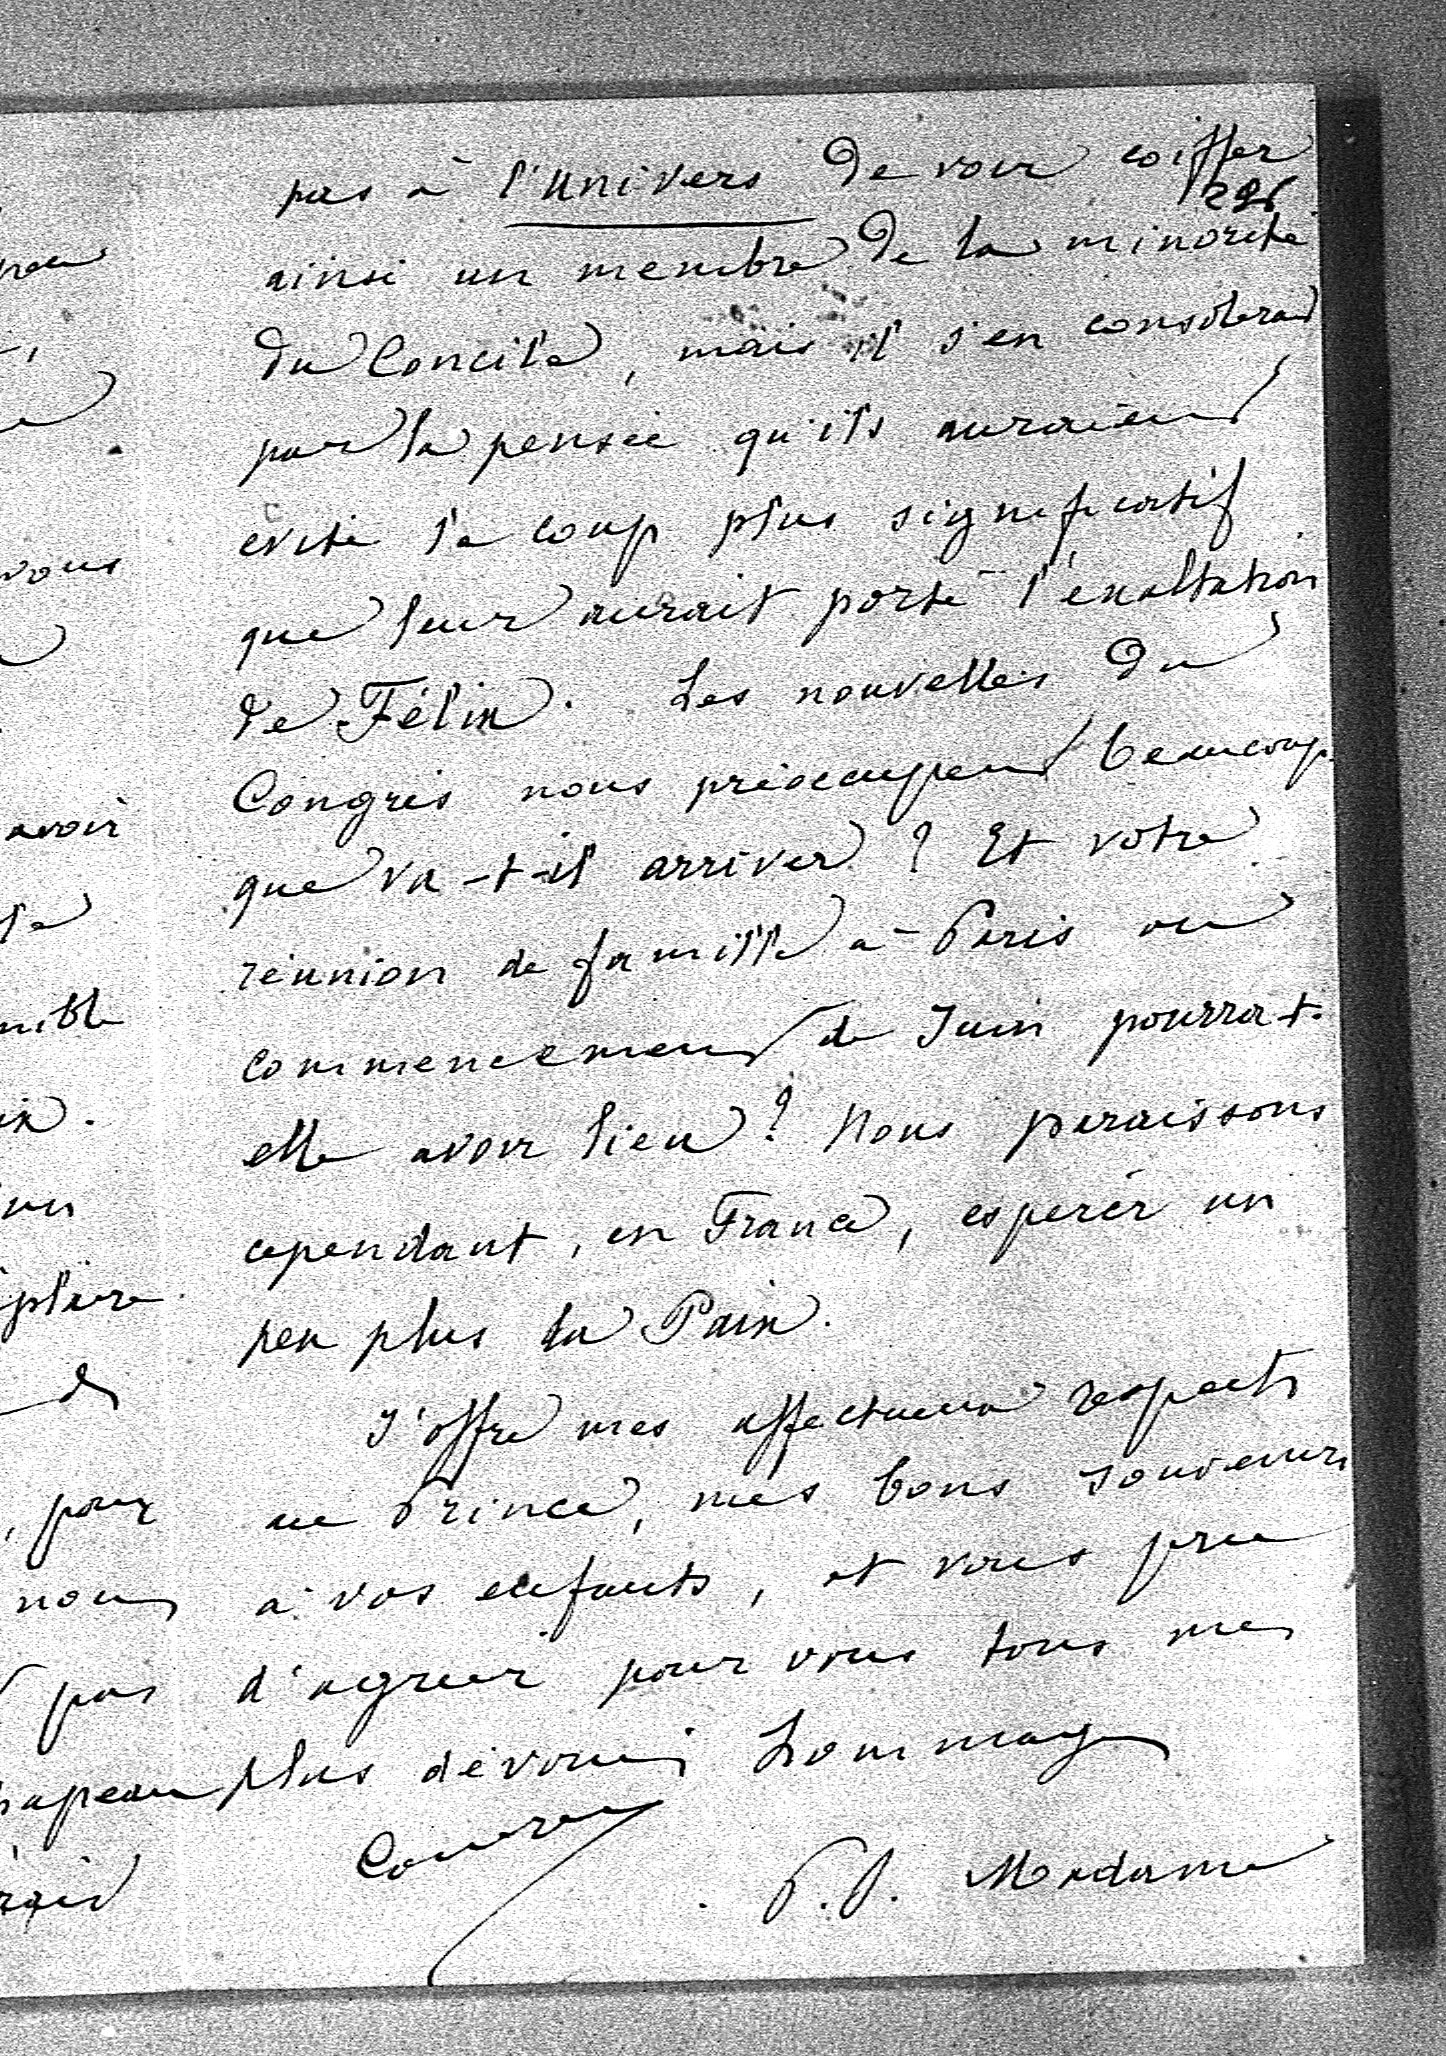 pas à l'Univers de voir coiffer
296
ainsi un membre de la minorité
du Concile, mais il s'en consolerait
par la pensée qu'ils auraient
évité le coup plus significatif
que leur aurait porté l'exaltation
de Félix. Les nouvelles du
Congrès nous préoccupent beaucoup
que va-t-il arriver ? Et votre
réunion de famille à Paris au
commencement de Juin pourra-t-
elle avoir lieu ? Nous paraissons
cependant, en France, espérer un
peu plus la Paix.
J'offre mes affectueux respects
au Prince, mes bons souvenirs
à vos enfants, et vous prie
d'agréer pour vous tous mes
plus dévoués hommages
P.S. Madame
vous
avoir
le
pour
nous
pas